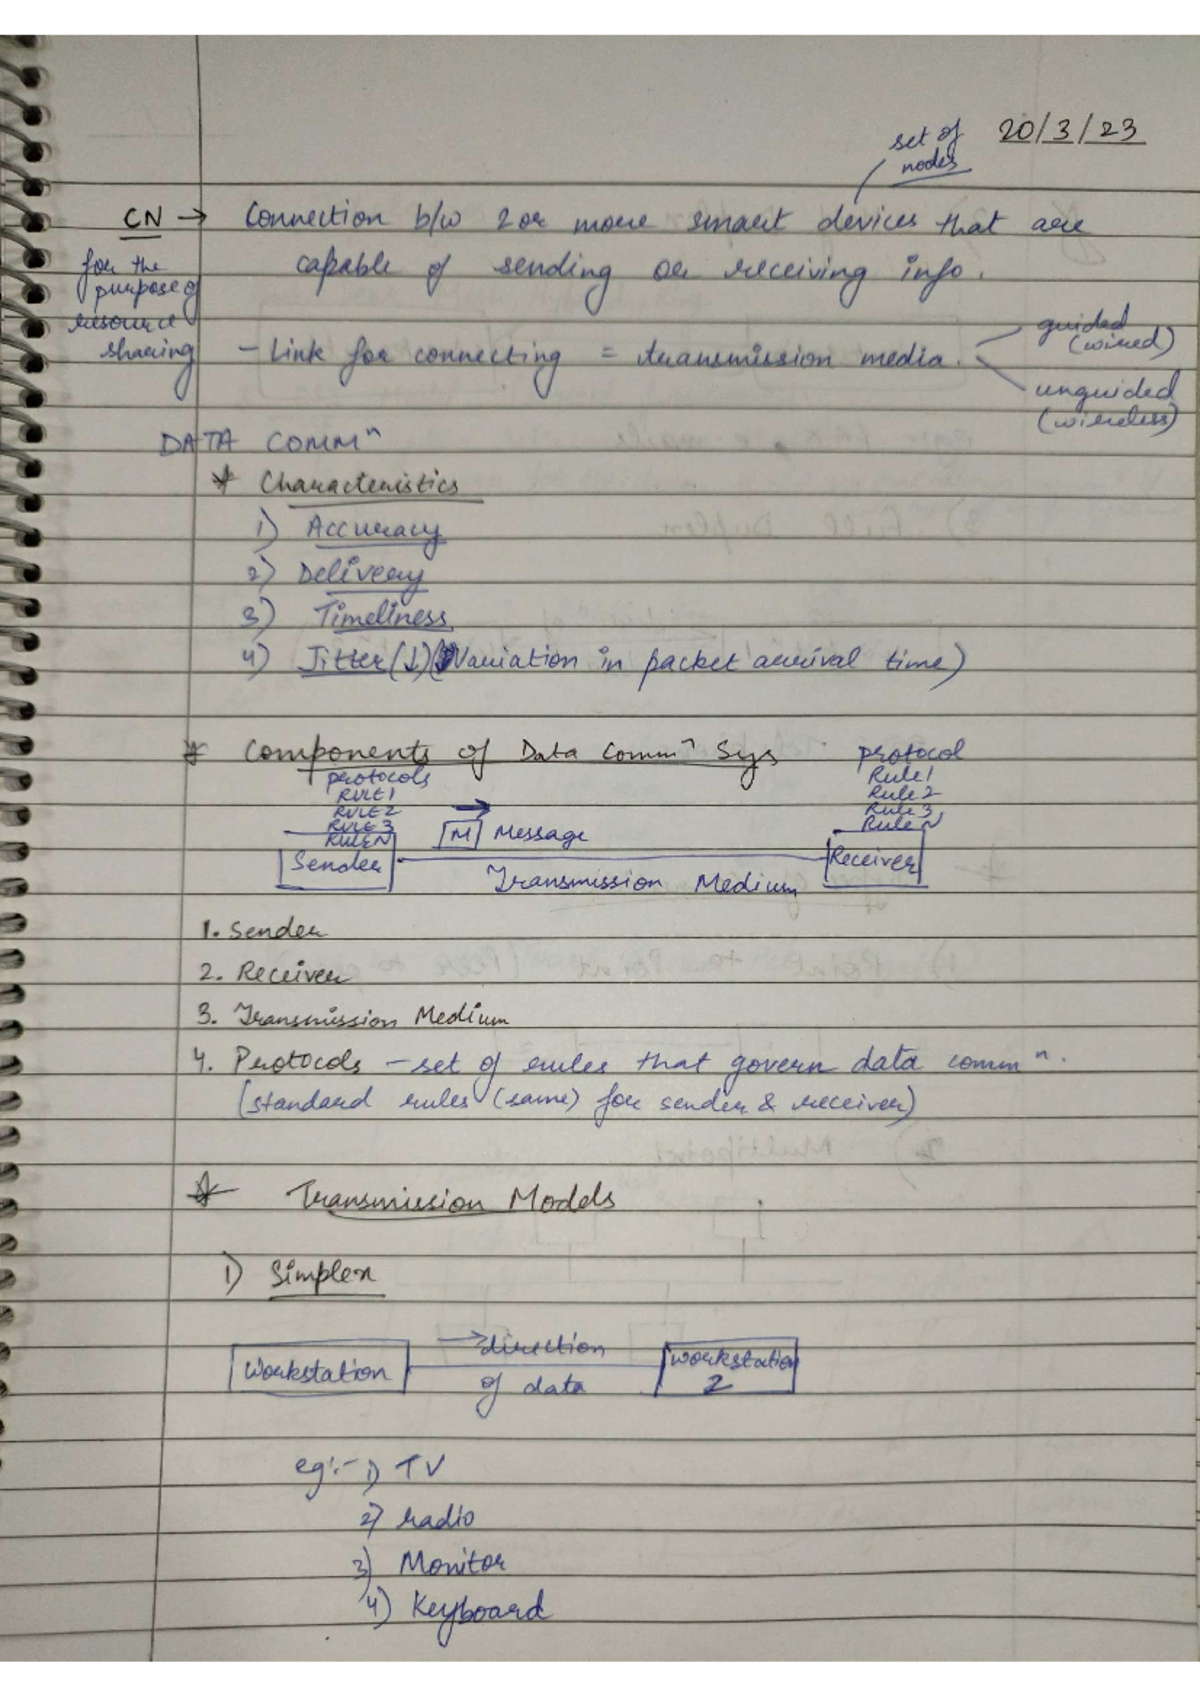 20/3/23
set of
nodes
CN → Connection b/w 2 or more smart devices that are
capable of sending or receiving info.
for the
purpose of
resource
sharing
- Link for connecting = transmission media.
guided
(wired)
unguided
(wireless)
DATA COMMⁿ
* Characteristics
1) Accuracy
2) Delivery
3) Timeliness
4) Jitter (↓) (Variation in packet arrival time)
* Components of Data Commⁿ Sys
protocols
RULE 1
RULE 2
RULE 3
RULE N
Sender
M Message
→
Transmission Medium
protocol
Rule 1
Rule 2
Rule 3
Rule N
Receiver
1. Sender
2. Receiver
3. Transmission Medium
4. Protocols - set of rules that govern data commⁿ.
(standard rules (same) for sender & receiver)
* Transmission Models
1) Simplex
Workstation
→ direction
of data
workstation
2
eg:- 1) TV
2) radio
3) Monitor
4) Keyboard